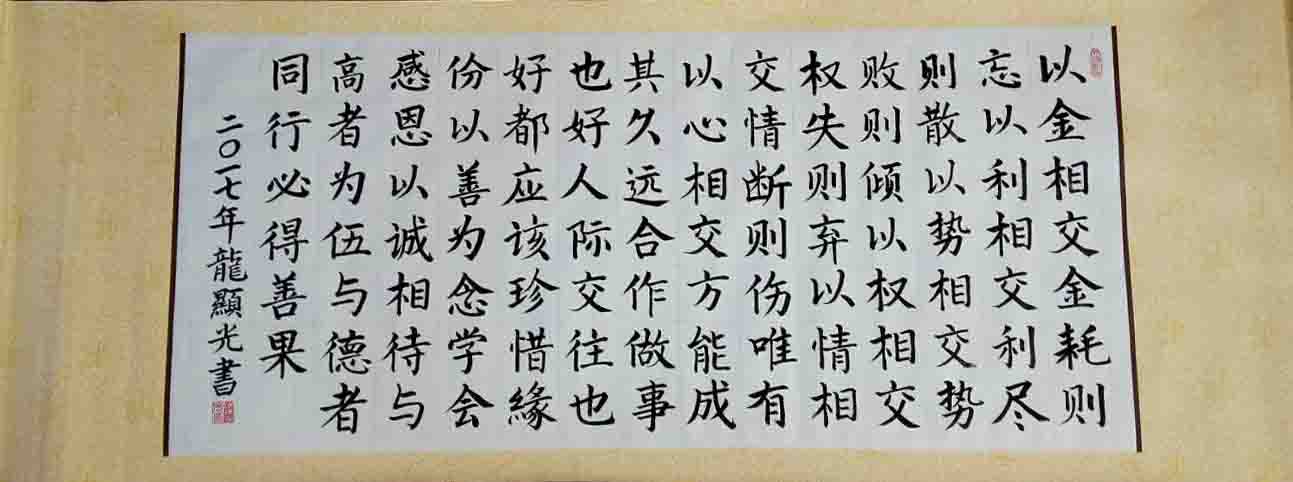 以金相交金耗则
忘以利相交利尽
则散以势相交势
败则倾以权相交
权失则弃以情相
交情断则伤唯有
以心相交方能成
其久远合作做事
也好人际交往也
好都应该珍惜缘
份以善为念学会
感恩以诚相待与
高者为伍与德者
同行必得善果
二〇一七年龍顯光書